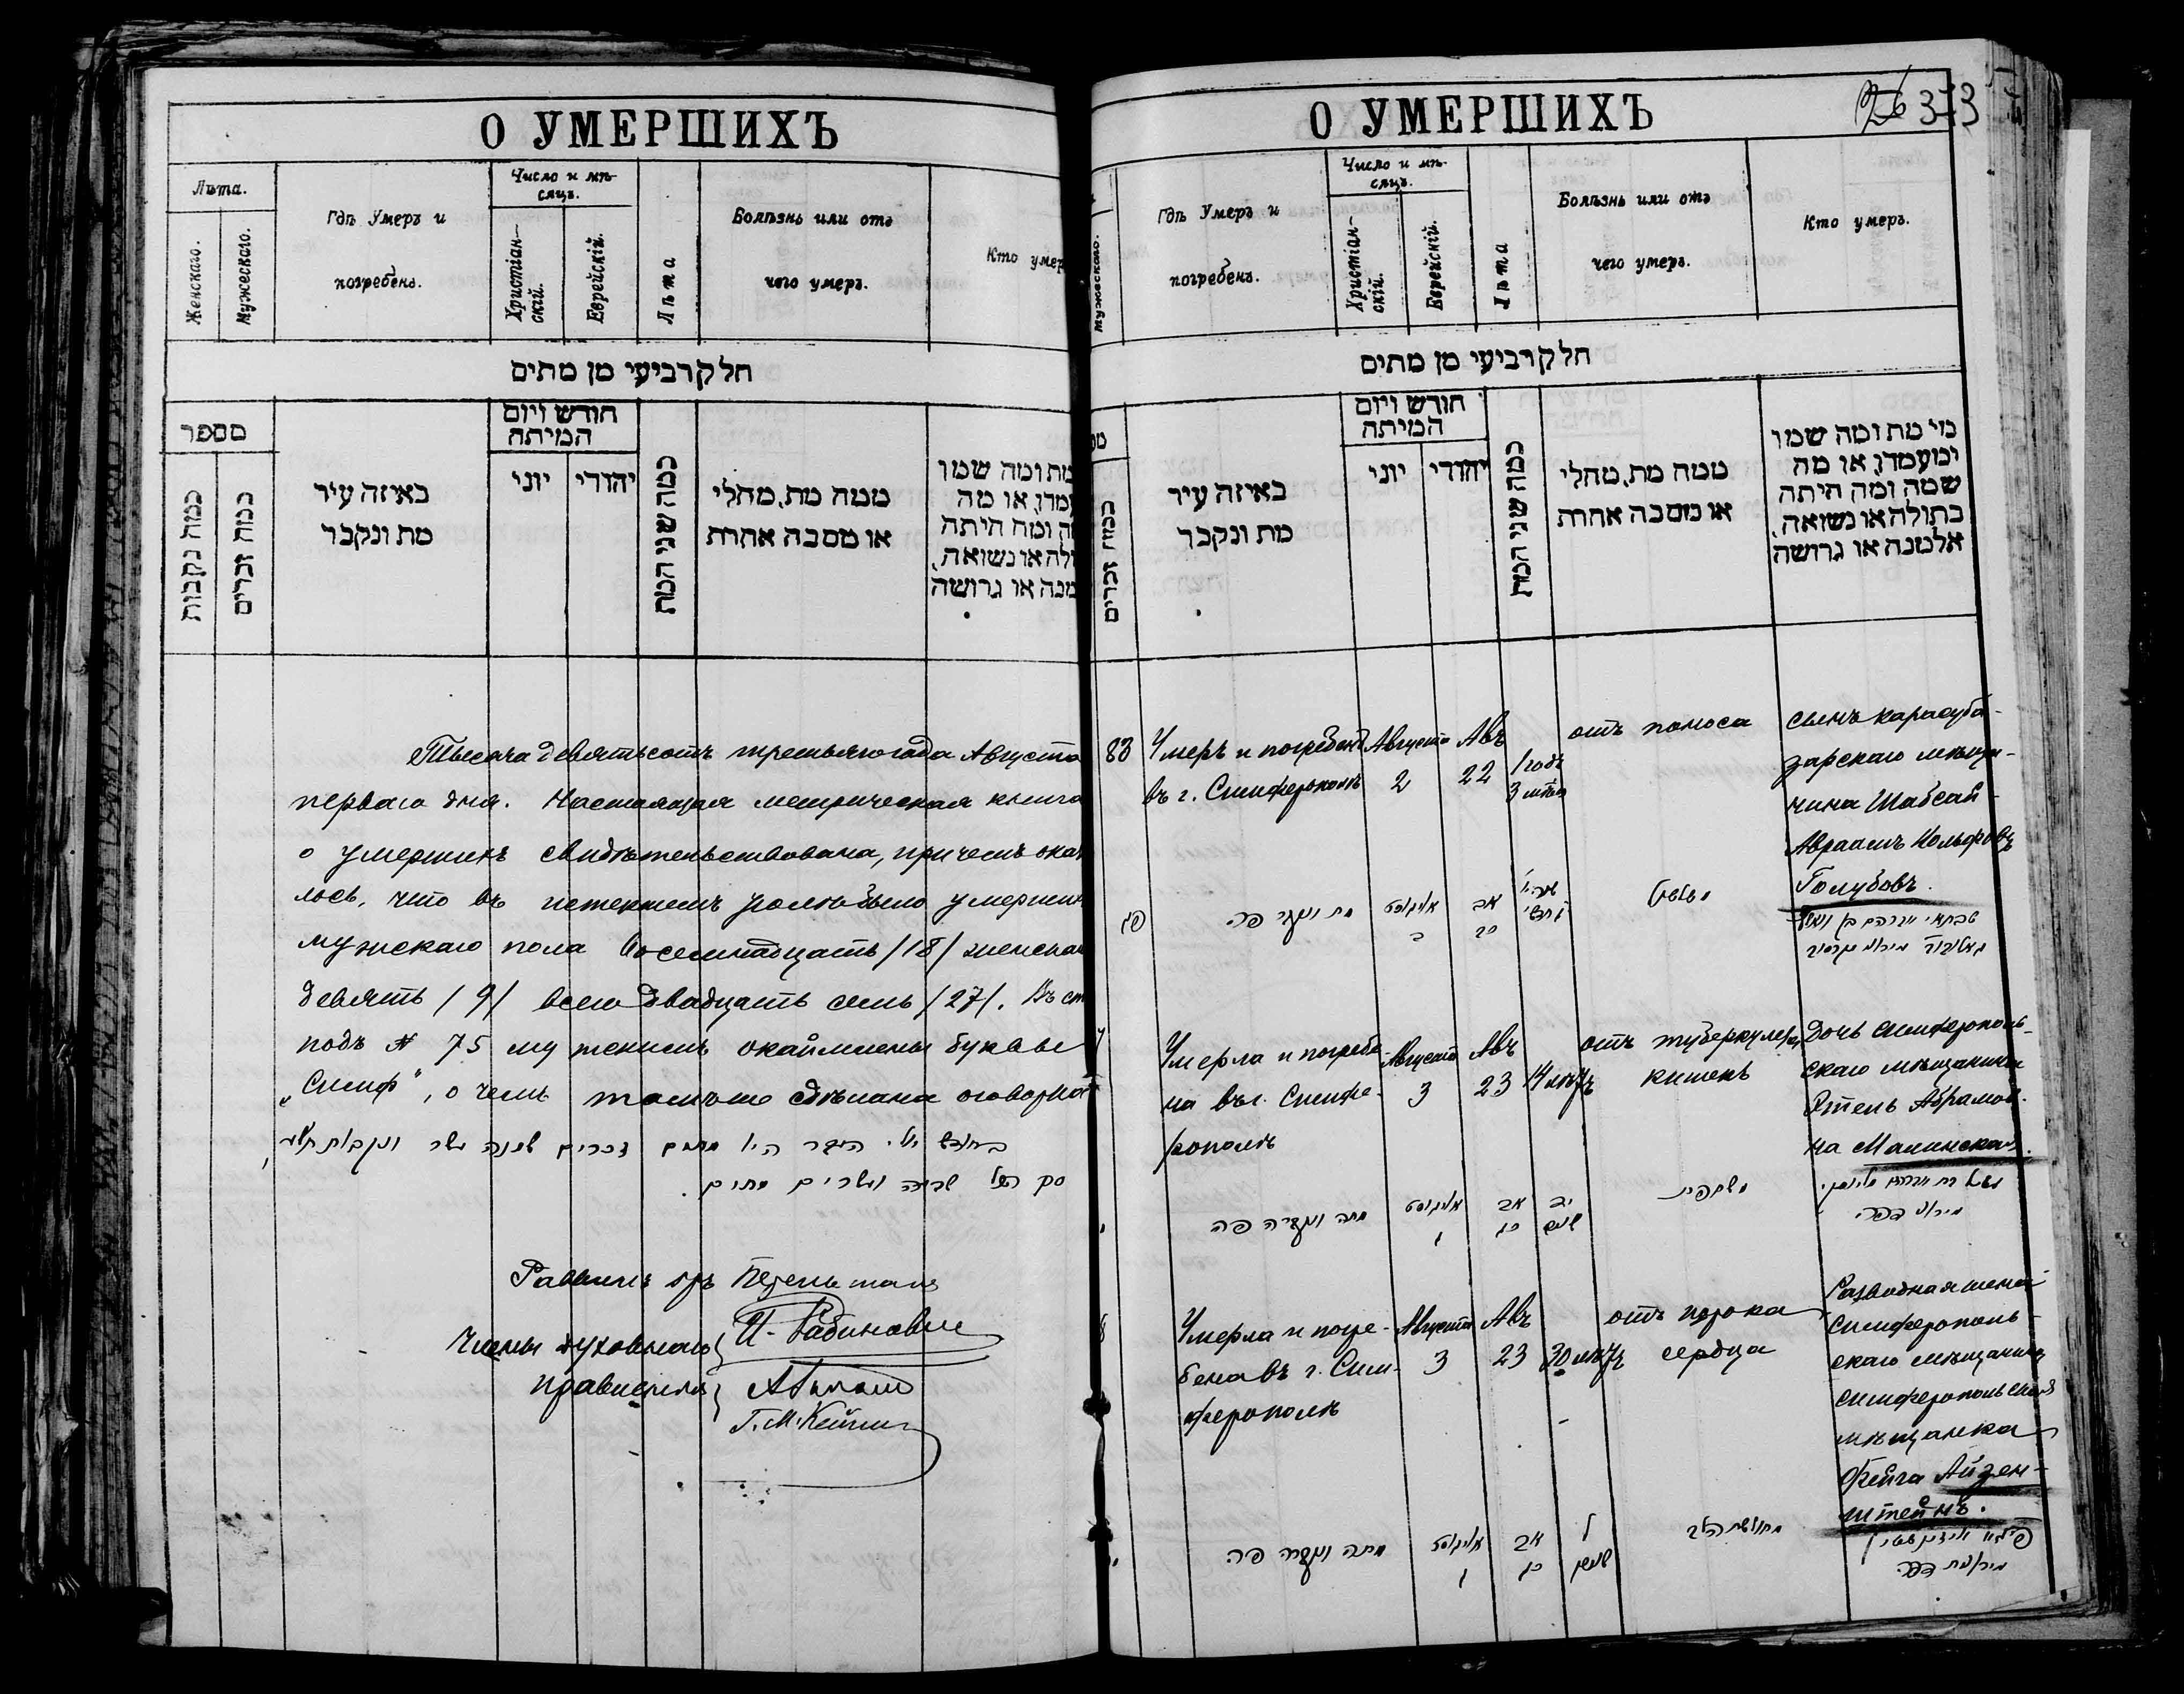 О УМЕРШИХЪ
Лѣта.
Женскаго.
Мужескаго.
Гдѣ Умеръ и
погребенъ.
Число и мѣ-
сяцъ.
Христіан-
скій.
Еврейскій.
Лѣта
Болѣзнь или отъ
чего умеръ.
Кто умер
חלק רביעי מן מתים
מספר
כמה נקבות
כמה זכרים
באיזה עיר
מת ונקבר
חודש ויום
המיתה
יוני
יהודי
כמה שני המת
ממה מת, מחלי
או מסבה אחרת
מת ומה שמו
עמדו, או מה
ה ומה היתה
ולה או נשואה,
מנה או גרושה
Тысяча девятьсотъ третьяго года Августа
перваго дня. Настоящая метрическая книга
о умершихъ свидѣтельствована, причемъ ока
лось, что въ истекшемъ было умерши
мужскаго пола восемнадцать /18/ женска
девять /9/ всего двадцать семь /27/. Въ ст
подъ № 75 окаймлены буквы
„Симф“, о чемъ тамъ же сдѣлана оговорка
זכרים שמנה עשר
סך הכל שבעה ועשרים מתים.
Раввинъ
И. Рабинович
Члены духовнаго
правленія
О УМЕРШИХЪ
373
Мужескаго.
Гдѣ Умеръ и
погребенъ.
Число и мѣ-
сяцъ.
Христіан-
скій.
Еврейскій.
Лѣта
Болѣзнь или отъ
чего умеръ.
Кто умеръ.
חלק רביעי מן מתים
כמה זכרים
באיזה עיר
מת ונקבר
חודש ויום
המיתה
יוני
יהודי
כמה שני המת
ממה מת, מחלי
או מסבה אחרת
מי מת ומה שמו
ומעמדו, או מה
שמה ומה היתה
בתולה או נשואה,
אלמנה או גרושה
83
Умеръ и погребенъ
въ г. Симферополѣ
Августа
2
Авъ
22
1 годъ
3 мѣс
отъ поноса
сынъ карасуба-
зарскаго мѣща-
нина Шабсай-
Авраамъ
Голубовъ.
פג
מת ונקבר פה
אויגוסט
ב
אב
כב
Умерла и погребе-
на въ г. Симфе-
рополѣ
Августа
3
Авъ
23
14 лѣтъ
отъ туберкулеза
кишекъ
Дочь симферополь-
скаго мѣщанина
Этель Абрамов-
на Малинская.
מתה ונקברה פה
אויגוסט
ג
אב
כג
Умерла и погре-
бена въ г. Сим-
ферополѣ
Августа
3
Авъ
23
30 лѣтъ
отъ порока
сердца
Разводная жена
симферополь-
скаго мѣщанина
симферопольская
мѣщанка
Фейга Айзен-
штейнъ.
מתה ונקברה פה
אויגוסט
ג
אב
כג
ל
שנים